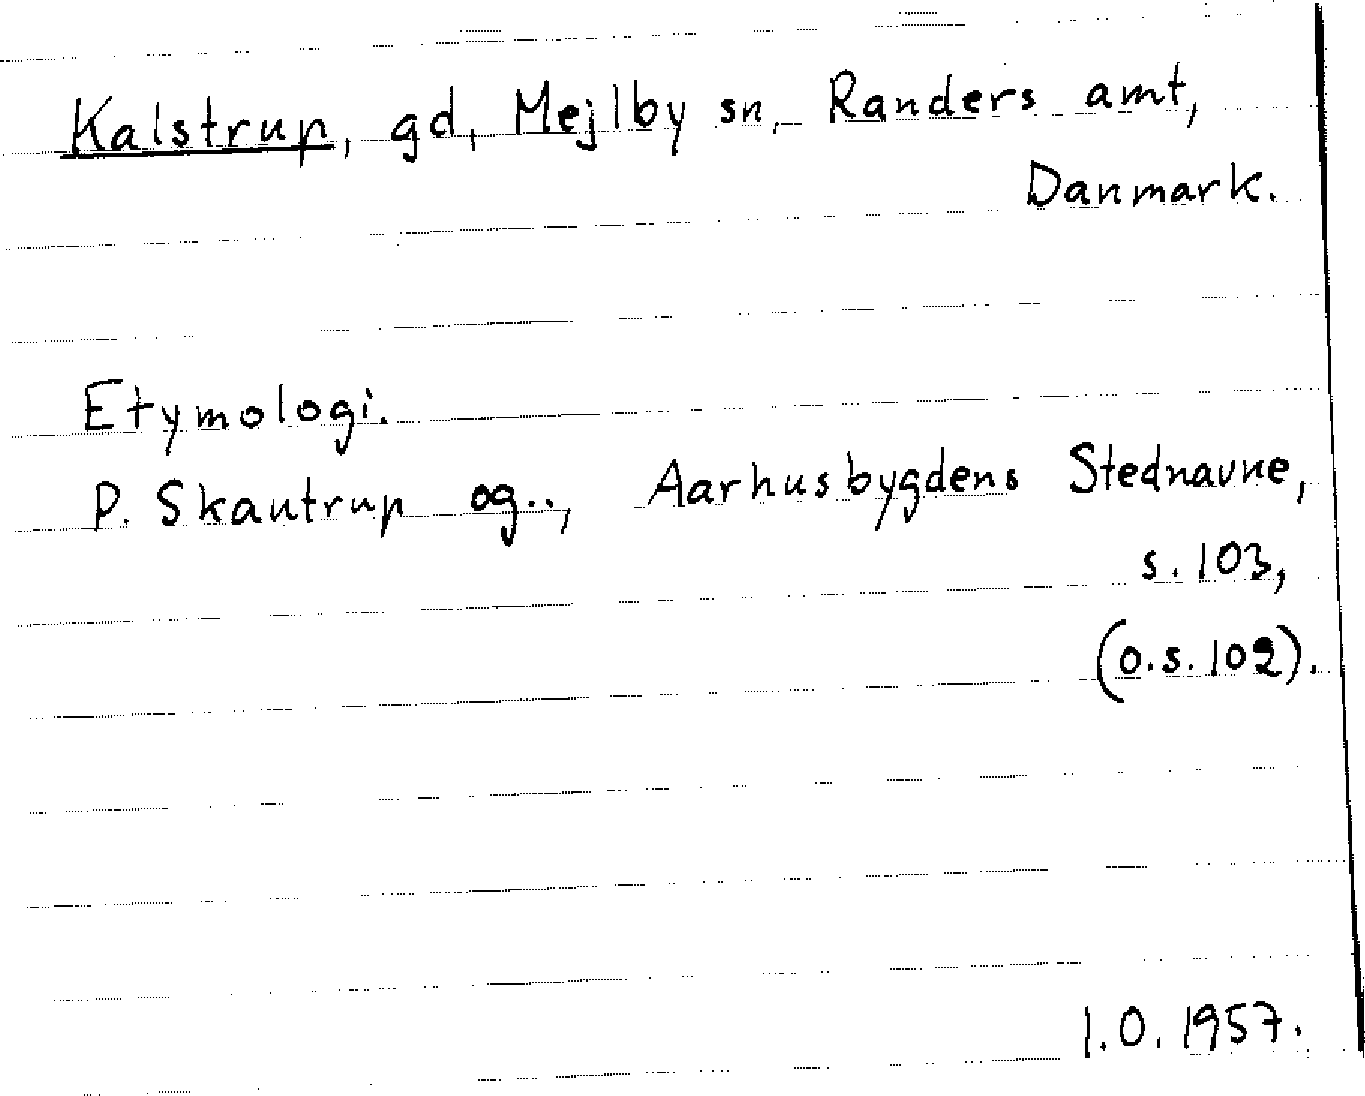 Kalstrup, gd, Mejlby sn, Randers amt,
Danmark.
Etymologi.
P. Skautrup og.., Aarhusbygdens Stednavne,
s. 103,
(o.s. 102).
1.0. 1957.